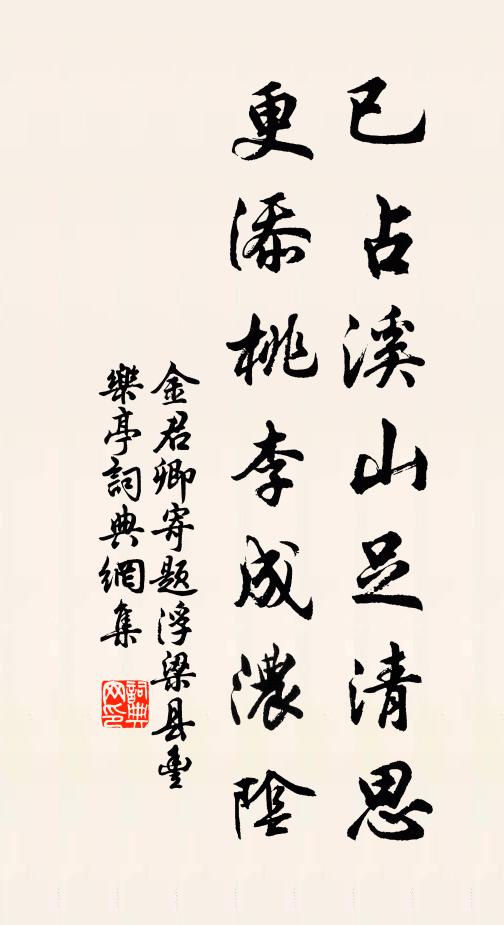 已占溪山足清思
更添桃李成濃陰
金君卿寄题浮梁县豐
樂亭詞典網集
詞典网印